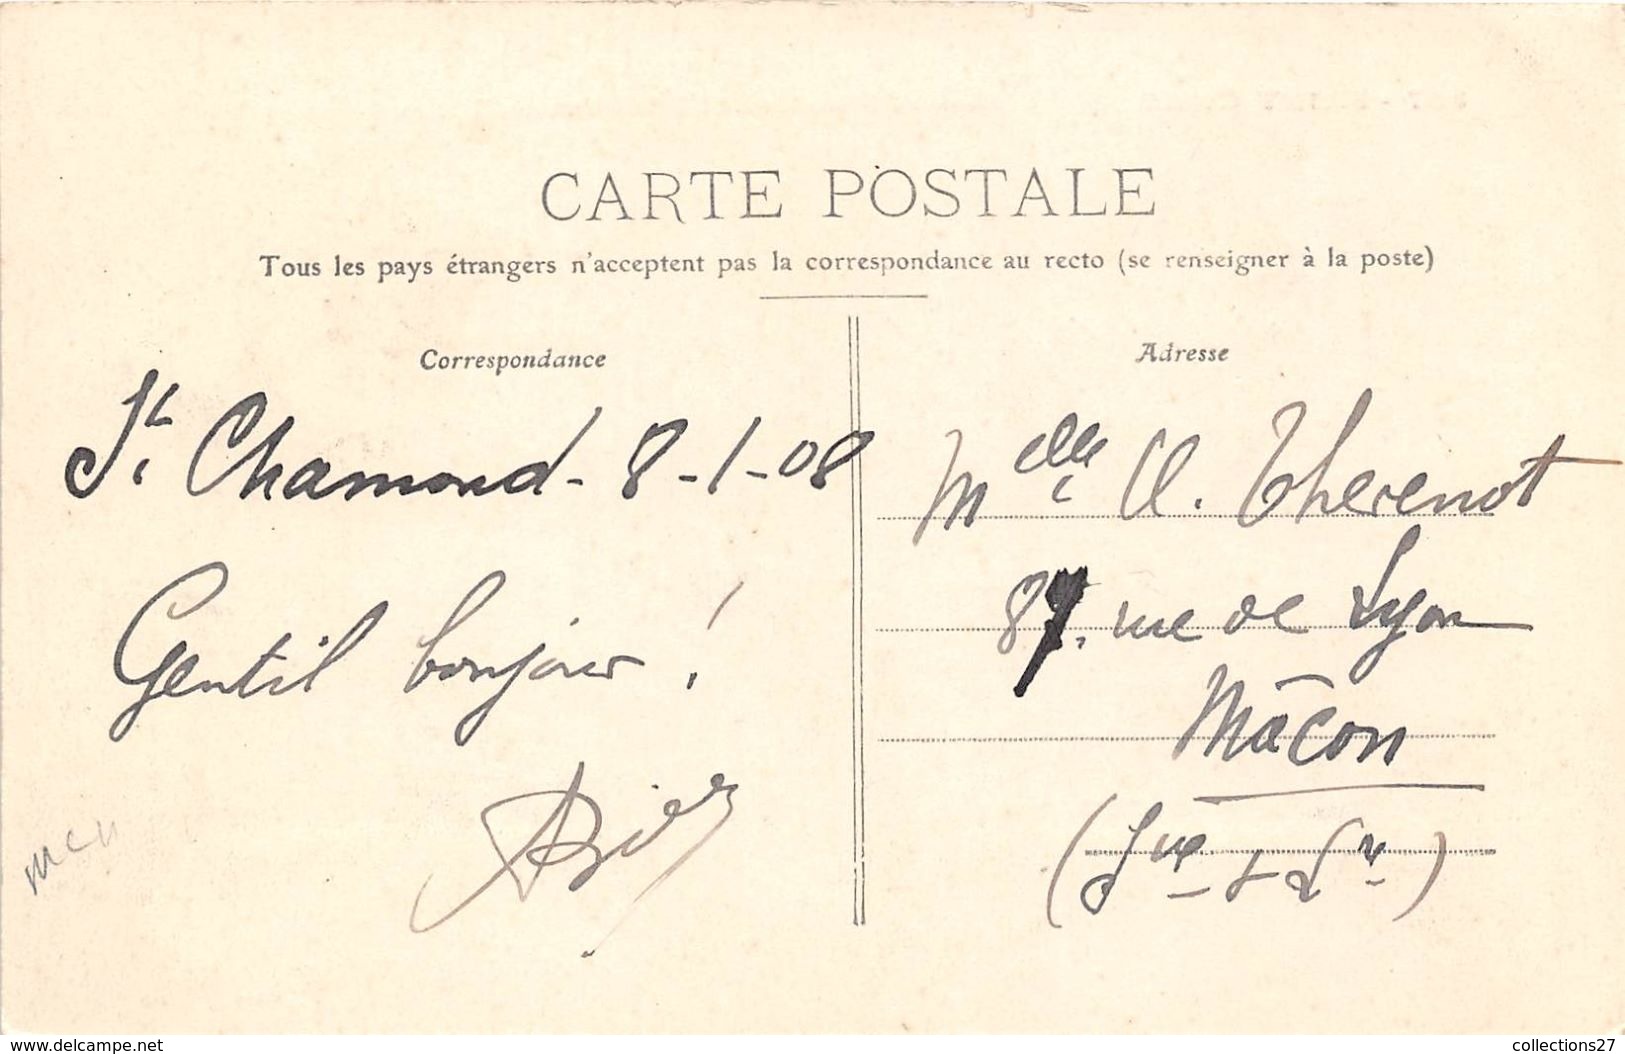 CARTE POSTALE
Tous les pays étrangers n'acceptent pas la correspondance au recto (se renseigner à la poste)
Correspondance
St. Chamond - 8-1-08
Gentil bonjour !
Adresse
Melle A. Thevenot
87, rue de Lyon
Mâcon
(Sne - & - Lre)
www.delcampe.net
collections27